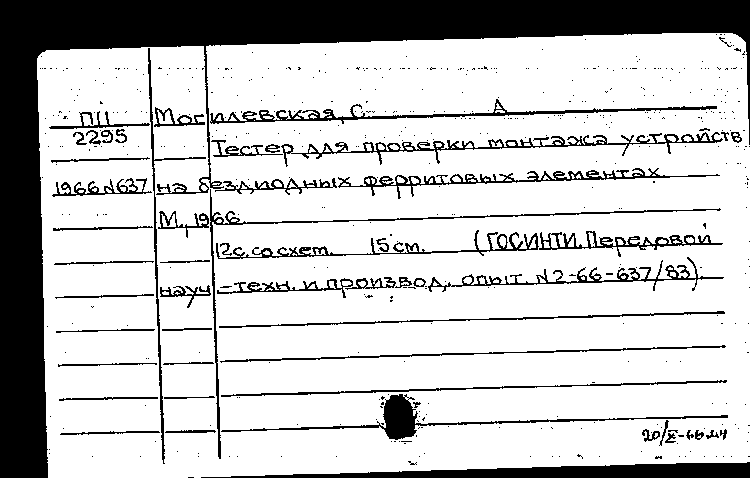 П11 Могилевская, С А
2295
Тестер для проверки монтажа устройств
1966 N637 на бездиодных ферритовых элементах.
М., 1966.
12с. со схем. 15 см. (ГОСИНТИ. Передовой
науч-техн. и производ. опыт. N2-66-637/83).
20/X-66